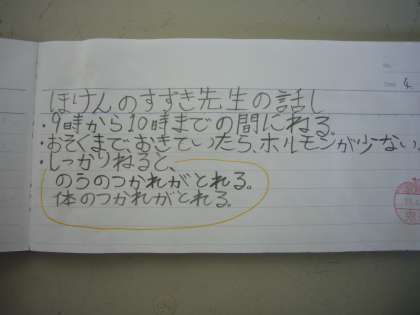 ほけんのすずき先生の話し
・9時から10時までの間にねる。
・おそくまで、おきていったら、ホルモンが少ない。
・しっかりねると、
のうのつかれがとれる。
体のつかれがとれる。